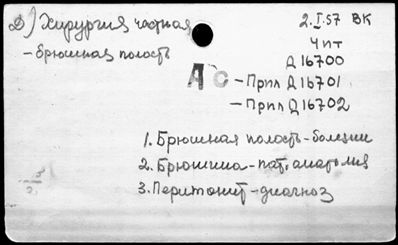 Д) Хирургия частная
2.I.57 ВК
- брюшная полость
Чит
Д16700
АС
- Прил Д16701
- Прил Д16702
1. Брюшная полость - болезни
2. Брюшина - пат. анатомия
3. Перитонит - диагноз